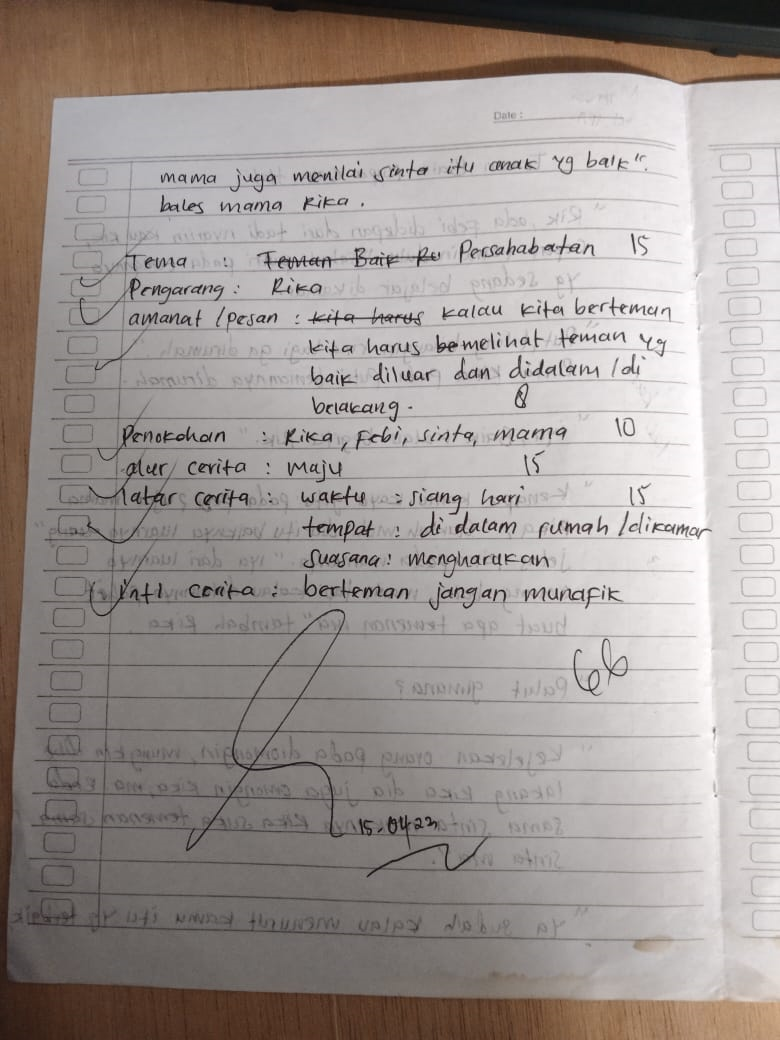 Date :
mama juga menilai sinta itu anak yg baik".
bales mama Rika.
Tema : Teman Baik Ru Persahabatan 15
Pengarang : Rika
amanat / pesan : kita harus kalau kita berteman
kita harus bemelihat teman yg
baik diluar dan didalam / di
belakang. 8
Penokohan : Rika, Febi, sinta, mama 10
alur cerita : maju 15
latar cerita : waktu : siang hari 15
tempat : di dalam rumah / dikamar
suasana : mengharukan
inti cerita : berteman jangan munafik
66
15-04-23